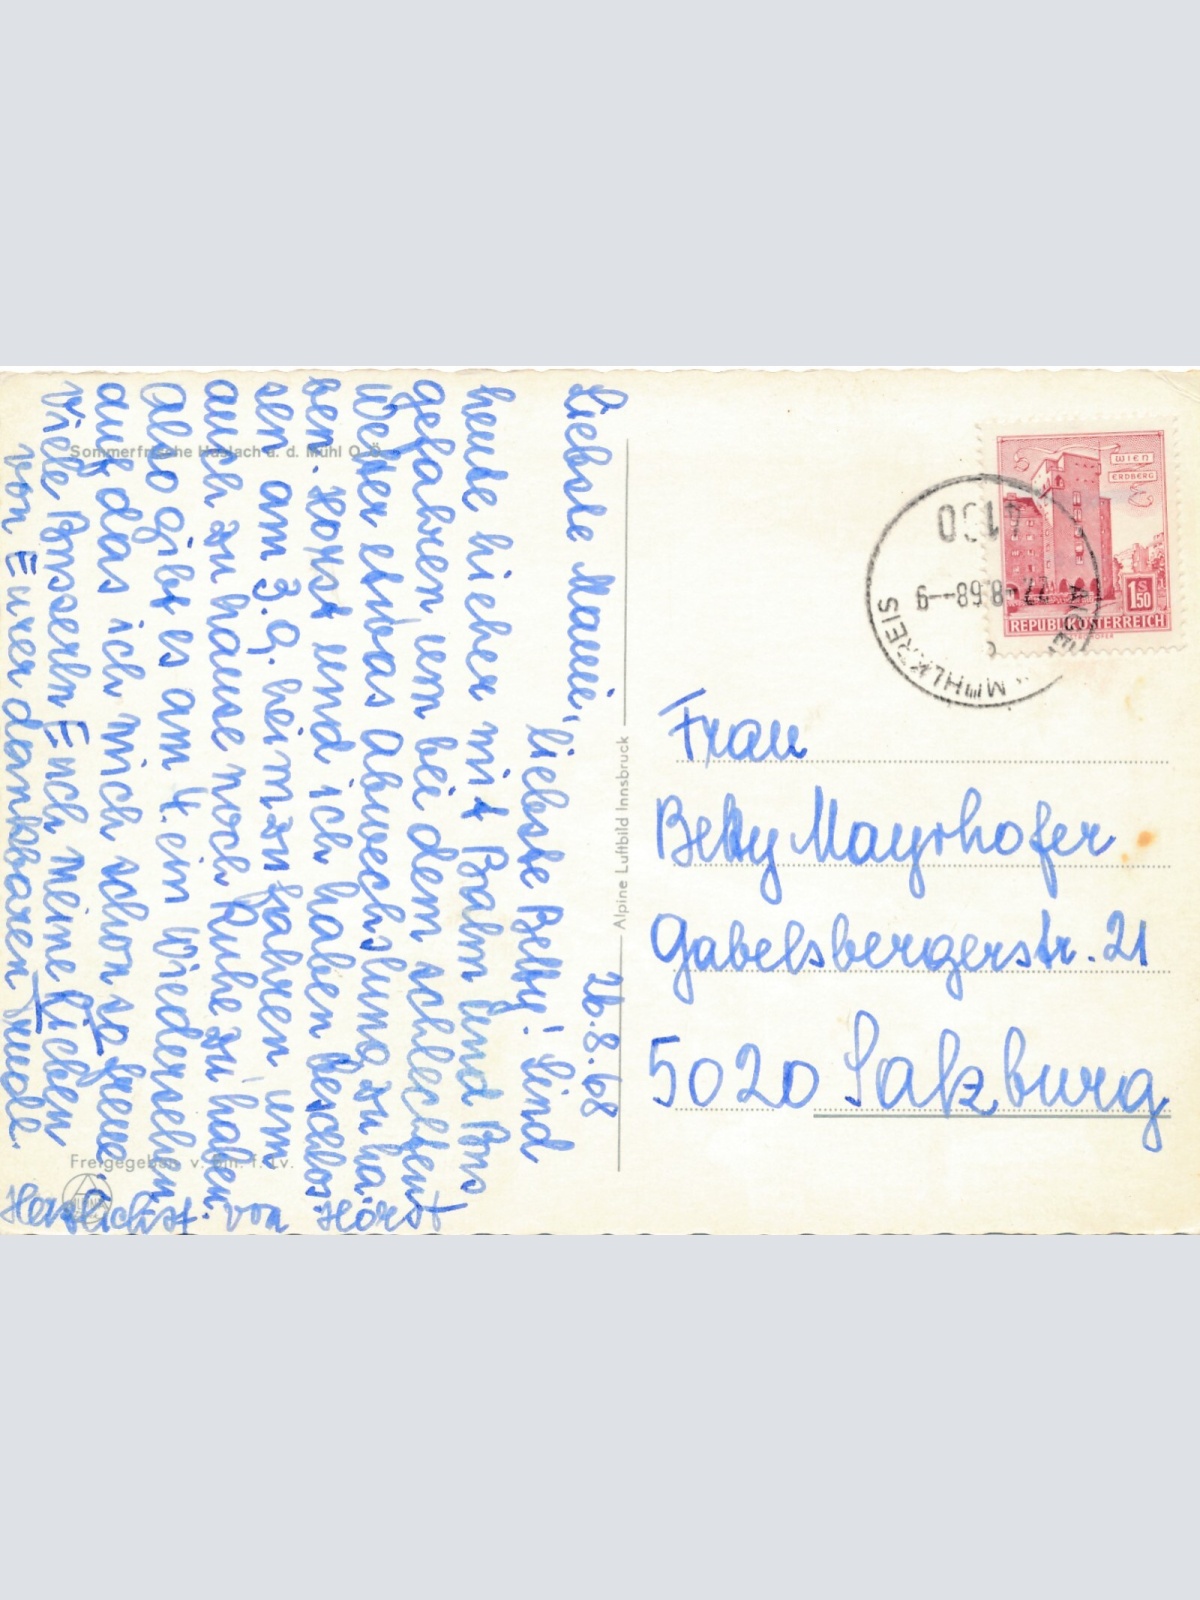 Sommerfrische Haslach a. d. Mühl O.Ö.
26.8.68
Liebste Mami,
liebste Betty! Sind
heute hieher mit Bahn und Bus
gefahren um bei dem schlechten
Wetter etwas Abwechslung zu ha-
ben. Horst und ich haben beschlos-
sen am 3.9. heimzufahren um
auch zu hause noch Ruhe zu haben.
Also gibt es am 4. ein Wiedersehen
auf das ich mich schon so freue.
Viele Busserln Euch meine Lieben
von Eurer dankbaren Trude.
Herzlichst von Horst
Freigegeben v. Bm. f. Lv.
Alpine Luftbild Innsbruck
WIEN
ERDBERG
1 S 50
REPUBLIK ÖSTERREICH
27.-8.68--9
MÜHLKREIS
Frau
Betty Mayrhofer
Gabelsbergerstr. 21
5020 Salzburg